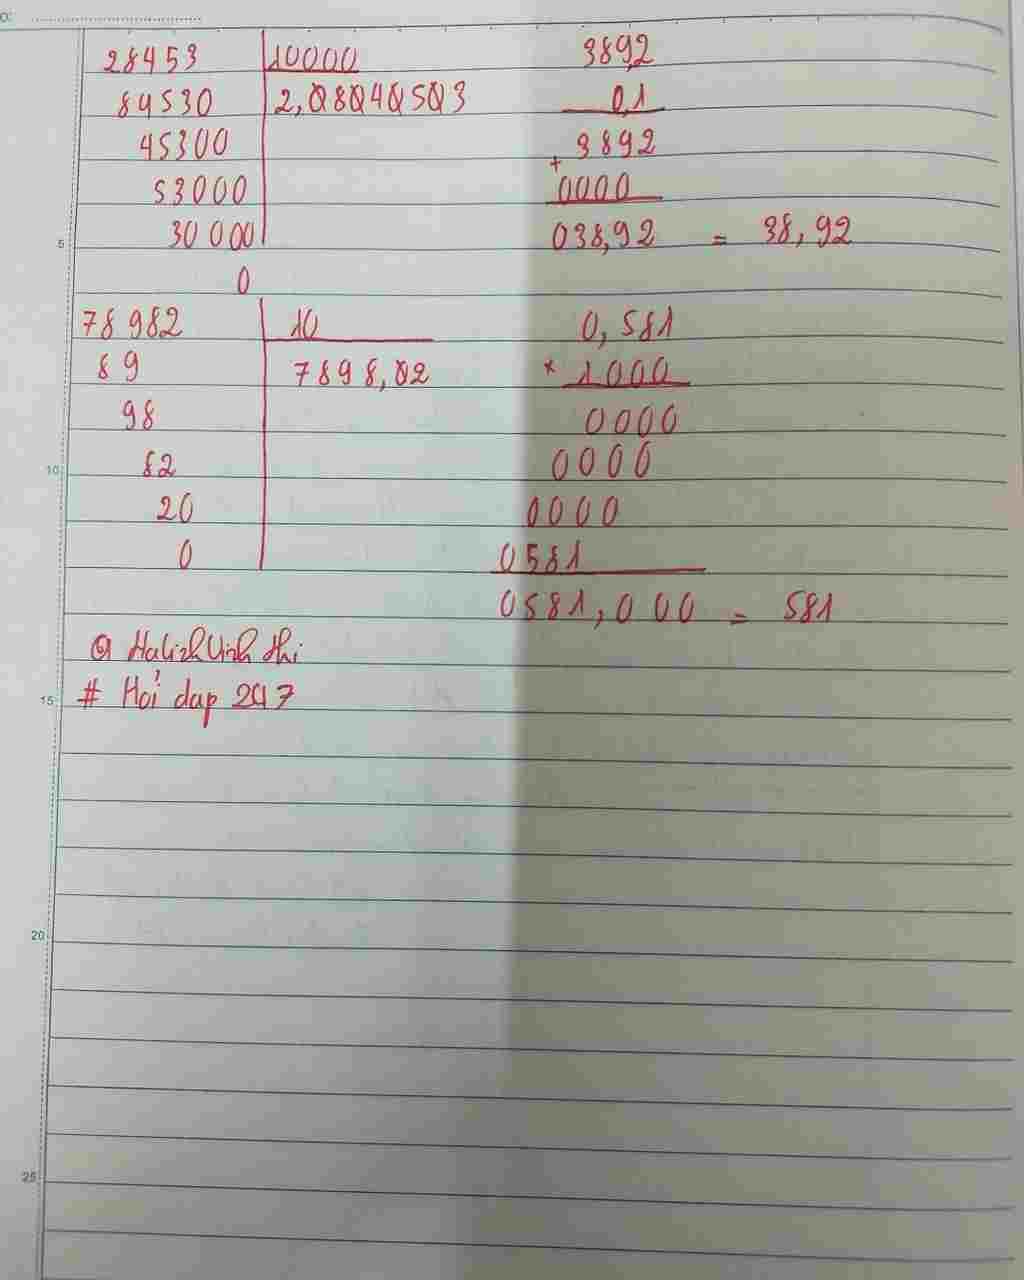 28453 10000
84530 2,08040503
45300
53000
30000
0
389,2
0,1
3892
+
0000
038,92 = 38,92
78982 10
89 7898,02
98
82
20
0
0,581
× 1000
0000
0000
0000
0581
0581,000 = 581
# Hỏi dap 247
5
10
15
20
25